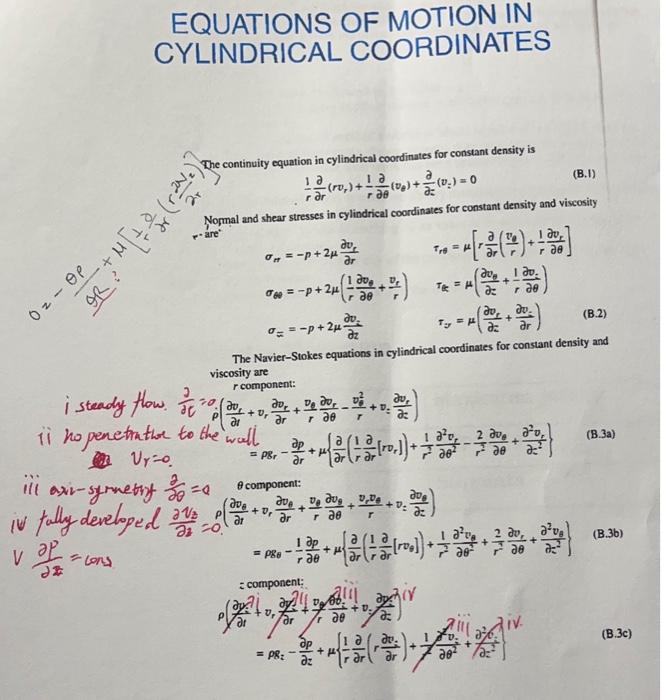 EQUATIONS OF MOTION IN
CYLINDRICAL COORDINATES
The continuity equation in cylindrical coordinates for constant density is
1/r ∂/∂r (rv_r) + 1/r ∂/∂θ (v_θ) + ∂/∂z (v_z) = 0 (B.1)
Normal and shear stresses in cylindrical coordinates for constant density and viscosity
are
σ_rr = −p + 2μ ∂v_r/∂r τ_rθ = μ[r ∂/∂r (v_θ/r) + 1/r ∂v_r/∂θ]
σ_θθ = −p + 2μ(1/r ∂v_θ/∂θ + v_r/r) τ_θz = μ(∂v_θ/∂z + 1/r ∂v_z/∂θ)
σ_zz = −p + 2μ ∂v_z/∂z = μ(∂v_r/∂z + ∂v_z/∂r) (B.2)
The Navier–Stokes equations in cylindrical coordinates for constant density and
viscosity are
r component:
ρ(∂v_r/∂t + v_r ∂v_r/∂r + v_θ/r ∂v_r/∂θ − v_θ²/r + v_z ∂v_r/∂z)
= ρg_r − ∂p/∂r + μ{∂/∂r (1/r ∂/∂r [rv_r]) + 1/r² ∂²v_r/∂θ² − 2/r² ∂v_θ/∂θ + ∂²v_r/∂z²} (B.3a)
θ component:
ρ(∂v_θ/∂t + v_r ∂v_θ/∂r + v_θ/r ∂v_θ/∂θ + v_r v_θ/r + v_z ∂v_θ/∂z)
= ρg_θ − 1/r ∂p/∂θ + μ{∂/∂r (1/r ∂/∂r [rv_θ]) + 1/r² ∂²v_θ/∂θ² + 2/r² ∂v_r/∂θ + ∂²v_θ/∂z²} (B.3b)
z component:
ρ(∂v_z/∂t + v_r ∂v_z/∂r + v_θ/r ∂v_z/∂θ + v_z ∂v_z/∂z) i ii iii iv
= ρg_z − ∂p/∂z + μ{1/r ∂/∂r (r ∂v_z/∂r) + 1/r² ∂²v_z/∂θ² + ∂²v_z/∂z²} iii iv. (B.3c)
0 = − ∂P/∂R + M[1/r ∂/∂r (r ∂V_z/∂r)]
?
i steady flow. ∂/∂t = 0
ii no penetration to the wall
V_r = 0.
iii axi-symmetry ∂/∂θ = 0
iv fully-developed ∂V_z/∂z = 0.
V ∂P/∂z = cons